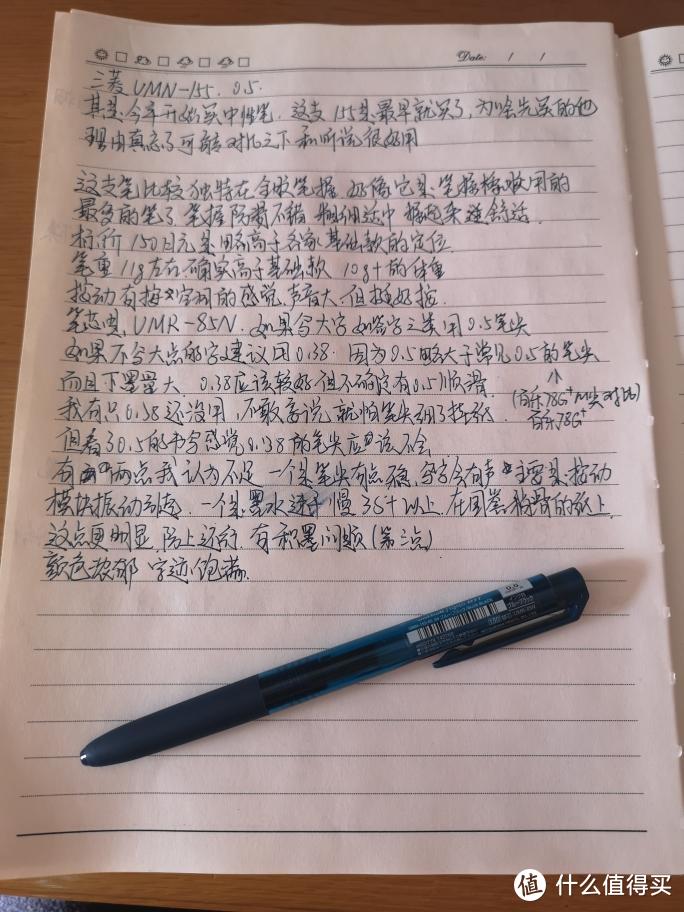 Date: / /
三菱 UMN-155. 0.5.
其实今年开始买中性笔. 这支155是最早就买了, 为啥先买的他
理由真忘了可能对比之下和听说很好用
这支笔比较独特在全收笔握. 好像它是笔握橡胶用的
最多的笔了. 笔握防滑不错 粗细适中 握起来还舒适.
标价150日元是略高于各家基础款的定位.
笔重11g左右. 确实高于基础款10g+的体重
按动有按 的感觉. 声音大. 但挺好按.
笔芯是 UMR-85N. 如果写大字 如签字之类用0.5笔尖
如果不写大点的字建议因0.38. 因为0.5略大于常见0.5的笔尖
而且下墨量大. 0.38应该较好但不确定有0.5顺滑.
(百乐78G+M尖对比)
百乐78G+
我有只0.38还没用, 不敢妄说 就怕笔尖细了挂纸.
但看30.5的书写感觉0.38的笔尖应该不会
有两点我认为不足 一个是笔尖有点晃, 写字会有声 主要是按动
模块振动引起. 一个是墨水速干慢 3S+以上. 在国誉 滑的纸上
这点更明显. 防上还行. 有积墨问题(第三点)
颜色浓郁 字迹饱满.
值 什么值得买